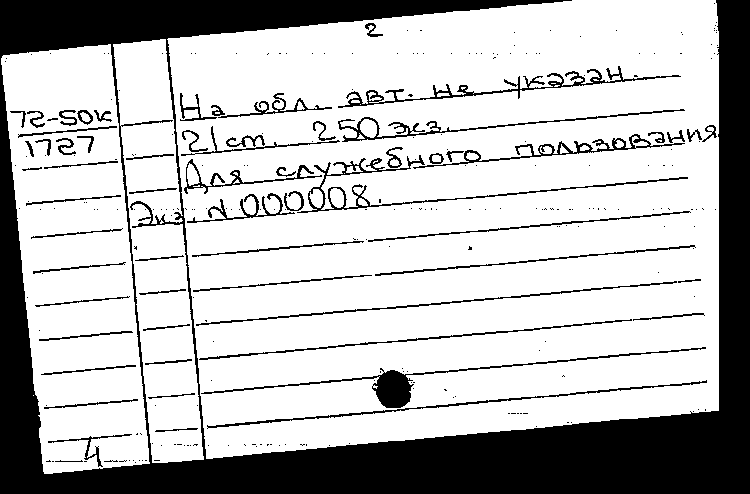 2
72-50к
1727
На обл. авт. не указан.
21ст. 250 экз.
Для служебного пользования
Экз. N 000008.
4